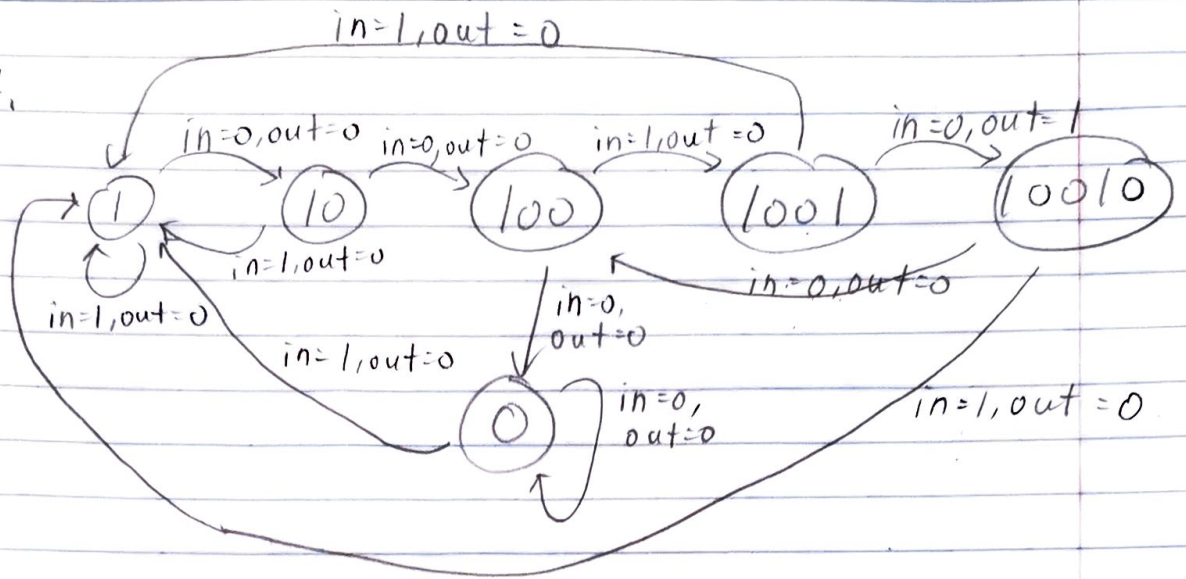 in=1,out=0
in=0,out=0
in=0,out=0
in=1,out=0
in=0,out=1
1
10
100
1001
10010
in=1,out=0
in=0,out=0
in=1,out=0
in=0,
out=0
in=1,out=0
0
in=0,
out=0
in=1,out=0